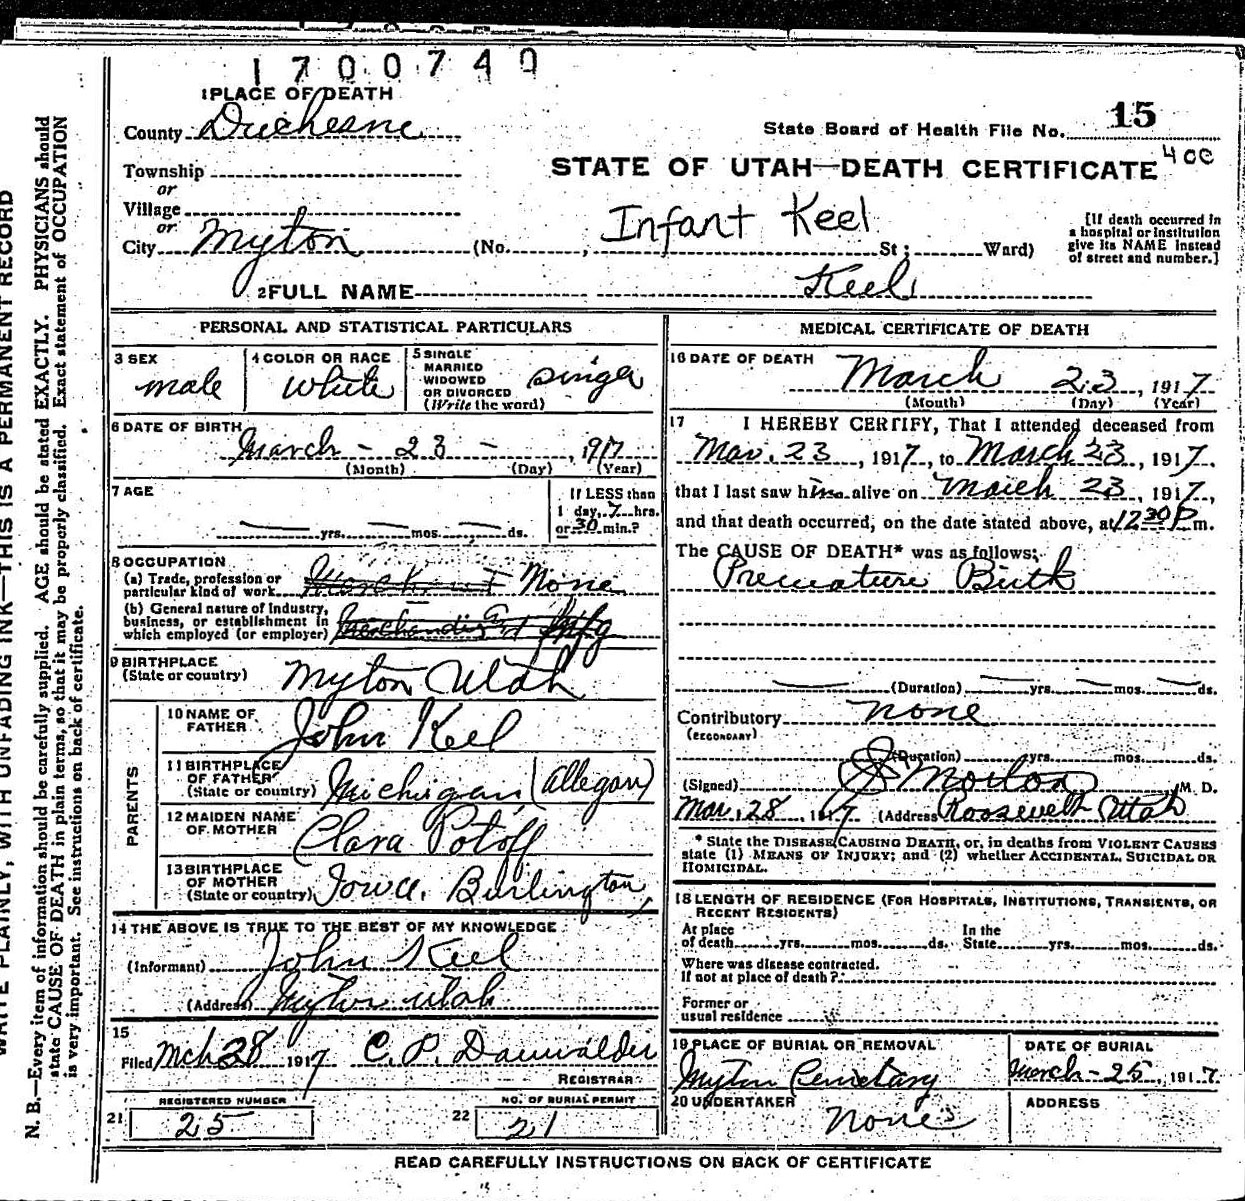 1700740
1 PLACE OF DEATH
County Duchesne
State Board of Health File No. 15
400
Township
STATE OF UTAH—DEATH CERTIFICATE
or
Village
or
City Myton (No. , Infant Keel St; Ward)
[If death occurred in
a hospital or institution
give its NAME instead
of street and number.]
2 FULL NAME Keel
PERSONAL AND STATISTICAL PARTICULARS
3 SEX
male
4 COLOR OR RACE
White
5 SINGLE
MARRIED
WIDOWED
OR DIVORCED
(Write the word)
6 DATE OF BIRTH
March - 23 - , 1917
(Month) (Day) (Year)
7 AGE
yrs. mos. ds.
If LESS than
1 day, 7 hrs.
or 30 min.?
8 OCCUPATION
(a) Trade, profession or
particular kind of work None
(b) General nature of Industry,
business, or establishment in
which employed (or employer)
9 BIRTHPLACE
(State or country) Myton Utah
PARENTS
10 NAME OF
FATHER John Keel
11 BIRTHPLACE
OF FATHER
(State or country) Michigan (Allegan)
12 MAIDEN NAME
OF MOTHER Clara Potoff
13 BIRTHPLACE
OF MOTHER
(State or country) Iowa, Burlington
14 THE ABOVE IS TRUE TO THE BEST OF MY KNOWLEDGE
(Informant) John Keel
(Address) Myton Utah
15
Filed Mch 28 1917 C. P. Dauwalder
REGISTRAR
REGISTERED NUMBER
21 25
NO. OF BURIAL PERMIT
22 21
MEDICAL CERTIFICATE OF DEATH
16 DATE OF DEATH
March 23, 1917
(Month) (Day) (Year)
17 I HEREBY CERTIFY, That I attended deceased from
Mar. 23, 1917, to March 23, 1917.
that I last saw him alive on March 23, 1917,
and that death occurred, on the date stated above, at 12 30 P m.
The CAUSE OF DEATH* was as follows:
Premature Birth
(Duration) yrs. mos. ds.
Contributory none
(SECONDARY)
(Duration) yrs. mos. ds.
(Signed) Morton M. D.
Mar. 28, 1917 (Address Roosevelt Utah
* State the DISEASE CAUSING DEATH, or, in deaths from VIOLENT CAUSES
state (1) MEANS OF INJURY; and (2) whether ACCIDENTAL, SUICIDAL OR
HOMICIDAL.
18 LENGTH OF RESIDENCE (FOR HOSPITALS, INSTITUTIONS, TRANSIENTS, OR
RECENT RESIDENTS)
At place
of death yrs. mos. ds.
In the
State yrs. mos. ds.
Where was disease contracted,
If not at place of death?
Former or
usual residence
19 PLACE OF BURIAL OR REMOVAL
Myton Cemetary
DATE OF BURIAL
March - 25, 1917
20 UNDERTAKER
None
ADDRESS
READ CAREFULLY INSTRUCTIONS ON BACK OF CERTIFICATE
WRITE PLAINLY, WITH UNFADING INK—THIS IS A PERMANENT RECORD
N. B.—Every item of information should be carefully supplied. AGE should be stated EXACTLY. PHYSICIANS should
state CAUSE OF DEATH in plain terms, so that it may be properly classified. Exact statement of OCCUPATION
is very important. See instructions on back of certificate.